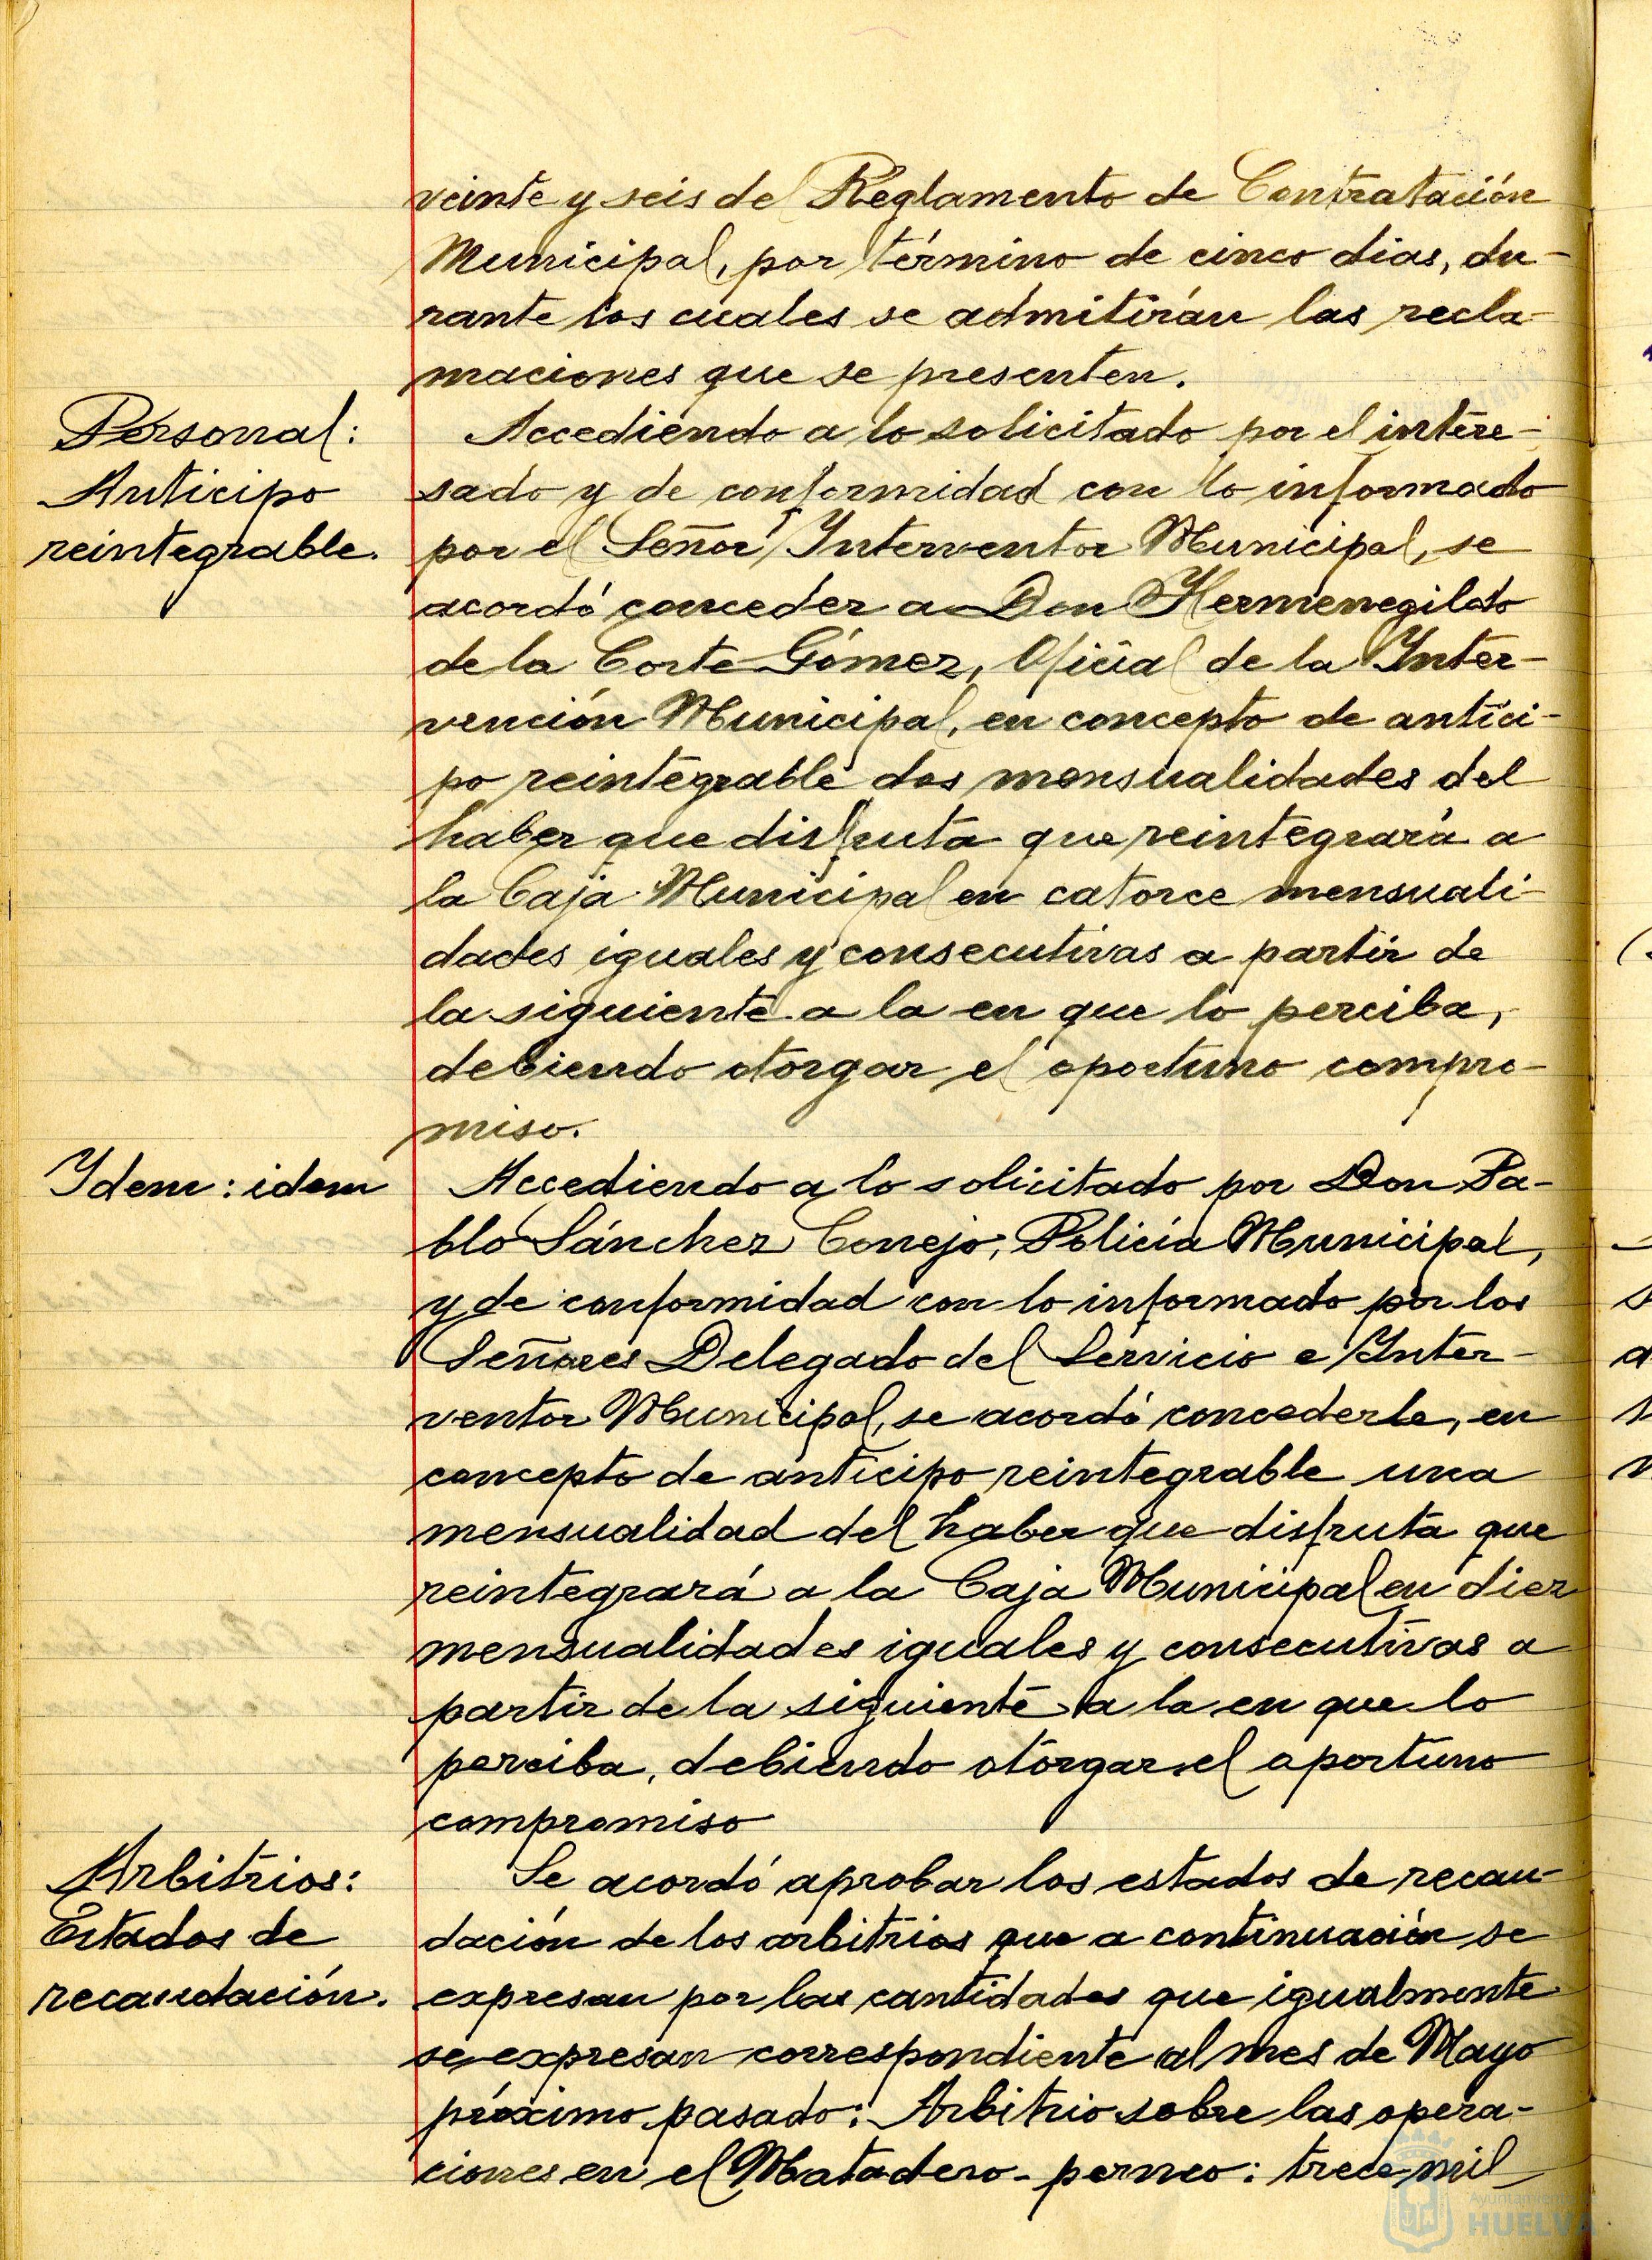 veinte y seis del Reglamento de Contratación
Municipal, por término de cinco dias, du-
rante los cuales se admitirán las recla-
maciones que se presenten.
Personal:
Anticipo
reintegrable.
Accediendo a lo solicitado por el intere-
sado y de conformidad con lo informado
por el Señor Interventor Municipal, se
acordó conceder a Don Hermenegildo
de la Corte Gómez, Oficial de la Inter-
vención Municipal, en concepto de antici-
po reintegrable dos mensualidades del
haber que disfruta que reintegrará a
la Caja Municipal en catorce mensuali-
dades iguales y consecutivas a partir de
la siguiente a la en que lo perciba,
debiendo otorgar el oportuno compro-
miso.
Ydem: idem
Accediendo a lo solicitado por Don Pa-
blo Sánchez Conejo, Policía Municipal,
y de conformidad con lo informado por los
Señores Delegado del Servicio e Inter-
ventor Municipal, se acordó concederle, en
concepto de anticipo reintegrable una
mensualidad del haber que disfruta que
reintegrará a la Caja Municipal en diez
mensualidades iguales y consecutivas a
partir de la siguiente a la en que lo
perciba, debiendo otorgar el oportuno
compromiso
Arbitrios:
Estados de
recaudación.
Se acordó aprobar los estados de recau-
dación de los arbitrios que a continuación se
expresan por las cantidades que igualmente
se expresan correspondiente al mes de Mayo
próximo pasado: Arbitrio sobre las opera-
ciones en el Matadero-porneo: trece mil
Ayuntamiento de
HUELVA